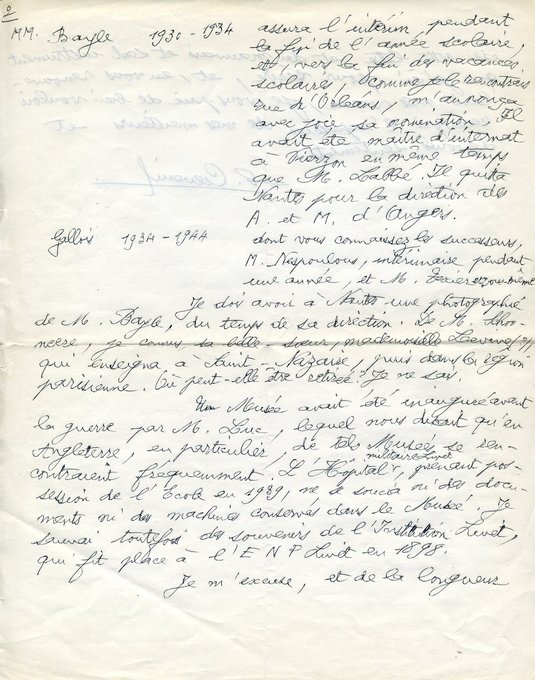 MM. Bayle 1930 - 1934 assura l'intérim pendant
la fin de l'année scolaire,
et, vers la fin des vacances
scolaires, comme je le rencontrais
rue d'Orléans, m'annonça
avec joie sa nomination. Il
avait été maître d'internat
à Vierzon en même temps
que M. Labbé. Il quitta
Nantes pour la direction des
A. et M. d'Angers.
Gallois 1934 - 1944 dont vous connaissez les successeurs,
M. Nespoulous, intérimaire pendant
une année, et M. et vous-même
Je dois avoir à Nantes une photographie
de M. Bayle, du temps de sa direction. De M.
je connus sa belle-sœur, mademoiselle
qui enseigna à Saint-Nazaire, puis dans la région
parisienne. Où peut-elle être retirée? Je ne sais.
Un Musée avait été inauguré avant
la guerre par M. Luc, lequel nous disait qu'en
Angleterre, en particulier, de tels Musées se ren-
contraient fréquemment. L'Hôpital militaire Livet, prenant pos-
session de l'Ecole en 1939, ne se soucia ni des docu-
ments ni des machines conservés dans le Musée. Je
sauvai toutefois des souvenirs de l'Institution Livet,
qui fit place à l'E N P Livet en 1898.
Je m'excuse, et de la longueur